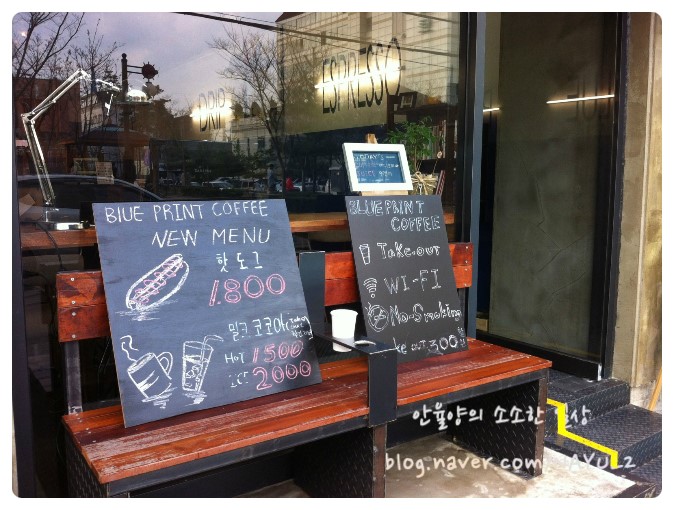 DRIP
ESPRESSO
TODAY'S
BLUE PRINT COFFEE
NEW MENU
핫도그
1.800
밀크코코아
HOT 1500
2000
BLUE PRINT
COFFEE
Take-out
WI-FI
No-Smoking
안율양의 소소한 일상
blog.naver.com